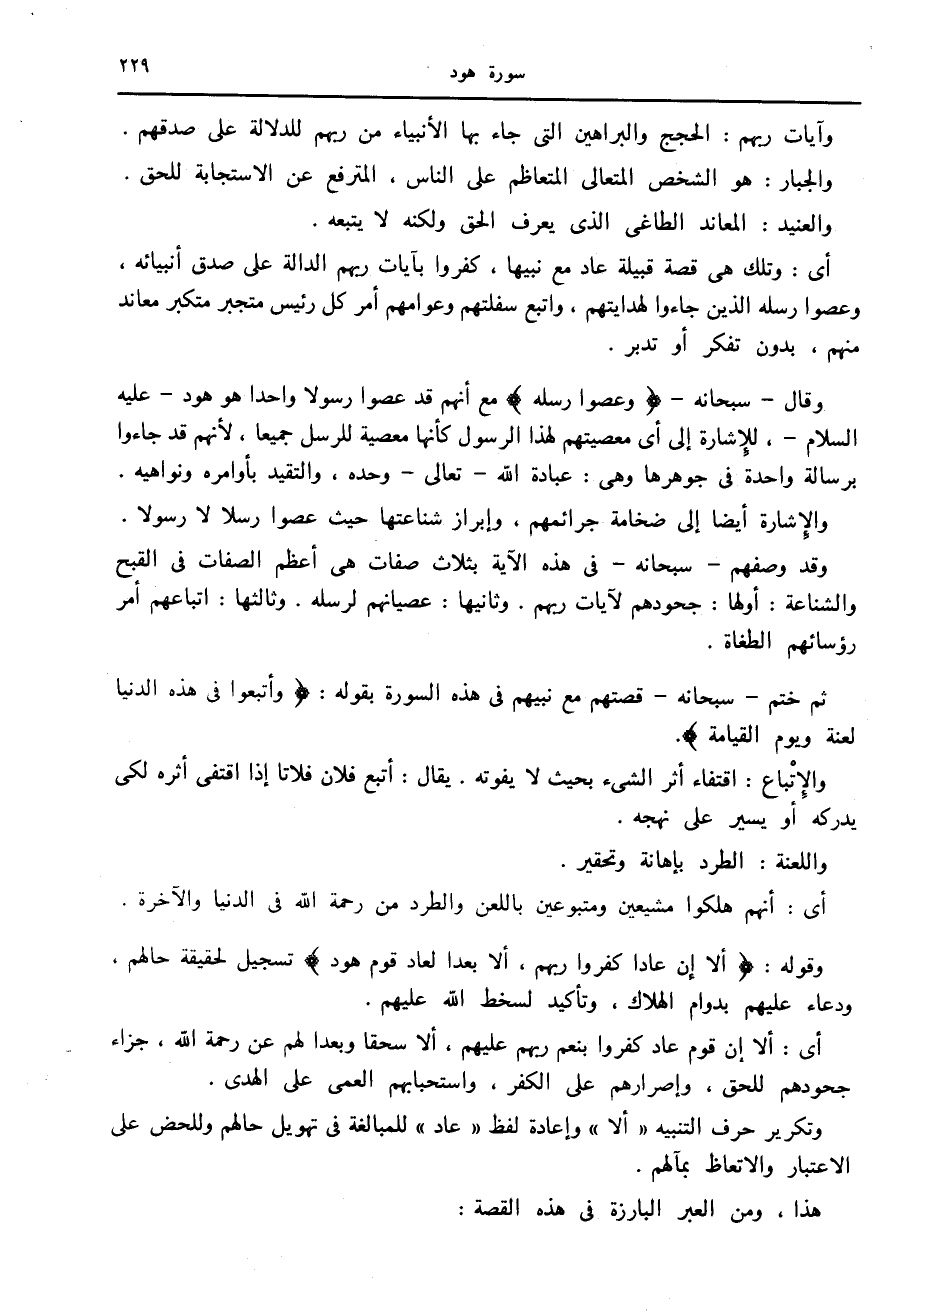 سورة هود
٢٢٩
وآيات ربهم : الحجج والبراهين التى جاء بها الأنبياء من ربهم للدلالة على صدقهم .
والجبار : هو الشخص المتعالى المتعاظم على الناس ، المترفع عن الاستجابة للحق .
والعنيد : المعاند الطاغى الذى يعرف الحق ولكنه لا يتبعه .
أى : وتلك هى قصة قبيلة عاد مع نبيها ، كفروا بآيات ربهم الدالة على صدق أنبيائه ،
وعصوا رسله الذين جاءوا لهدايتهم ، واتبع سفلتهم وعوامهم أمر كل رئيس متجبر متكبر معاند
منهم ، بدون تفكر أو تدبر .
وقال – سبحانه – ﴿ وعصوا رسله ﴾ مع أنهم قد عصوا رسولا واحدا هو هود – عليه
السلام – ، للإشارة إلى أى معصيتهم لهذا الرسول كأنها معصية للرسل جميعا ، لأنهم قد جاءوا
برسالة واحدة فى جوهرها وهى : عبادة الله – تعالى – وحده ، والتقيد بأوامره ونواهيه .
والإشارة أيضا إلى ضخامة جرائمهم ، وإبراز شناعتها حيث عصوا رسلا لا رسولا .
وقد وصفهم – سبحانه – فى هذه الآية بثلاث صفات هى أعظم الصفات فى القبح
والشناعة : أولها : جحودهم لآيات ربهم . وثانيها : عصيانهم لرسله . وثالثها : اتباعهم أمر
رؤسائهم الطغاة .
ثم ختم – سبحانه – قصتهم مع نبيهم فى هذه السورة بقوله : ﴿ وأتبعوا فى هذه الدنيا
لعنة ويوم القيامة ﴾.
والإتْباع : اقتفاء أثر الشىء بحيث لا يفوته . يقال : أتبع فلان فلاتا إذا اقتفى أثره لكى
يدركه أو يسير على نهجه .
واللعنة : الطرد بإهانة وتحقير .
أى : أنهم هلكوا مشيعين ومتبوعين باللعن والطرد من رحمة الله فى الدنيا والآخرة .
وقوله : ﴿ ألا إن عادا كفروا ربهم ، ألا بعدا لعاد قوم هود ﴾ تسجيل لحقيقة حالهم ،
ودعاء عليهم بدوام الهلاك ، وتأكيد لسخط الله عليهم .
أى : ألا إن قوم عاد كفروا بنعم ربهم عليهم ، ألا سحقا وبعدا لهم عن رحمة الله ، جزاء
جحودهم للحق ، وإصرارهم على الكفر ، واستحبابهم العمى على الهدى .
وتكرير حرف التنبيه « ألا » وإعادة لفظ « عاد » للمبالغة فى تهويل حالهم وللحض على
الاعتبار والاتعاظ بمآلهم .
هذا ، ومن العبر البارزة فى هذه القصة :